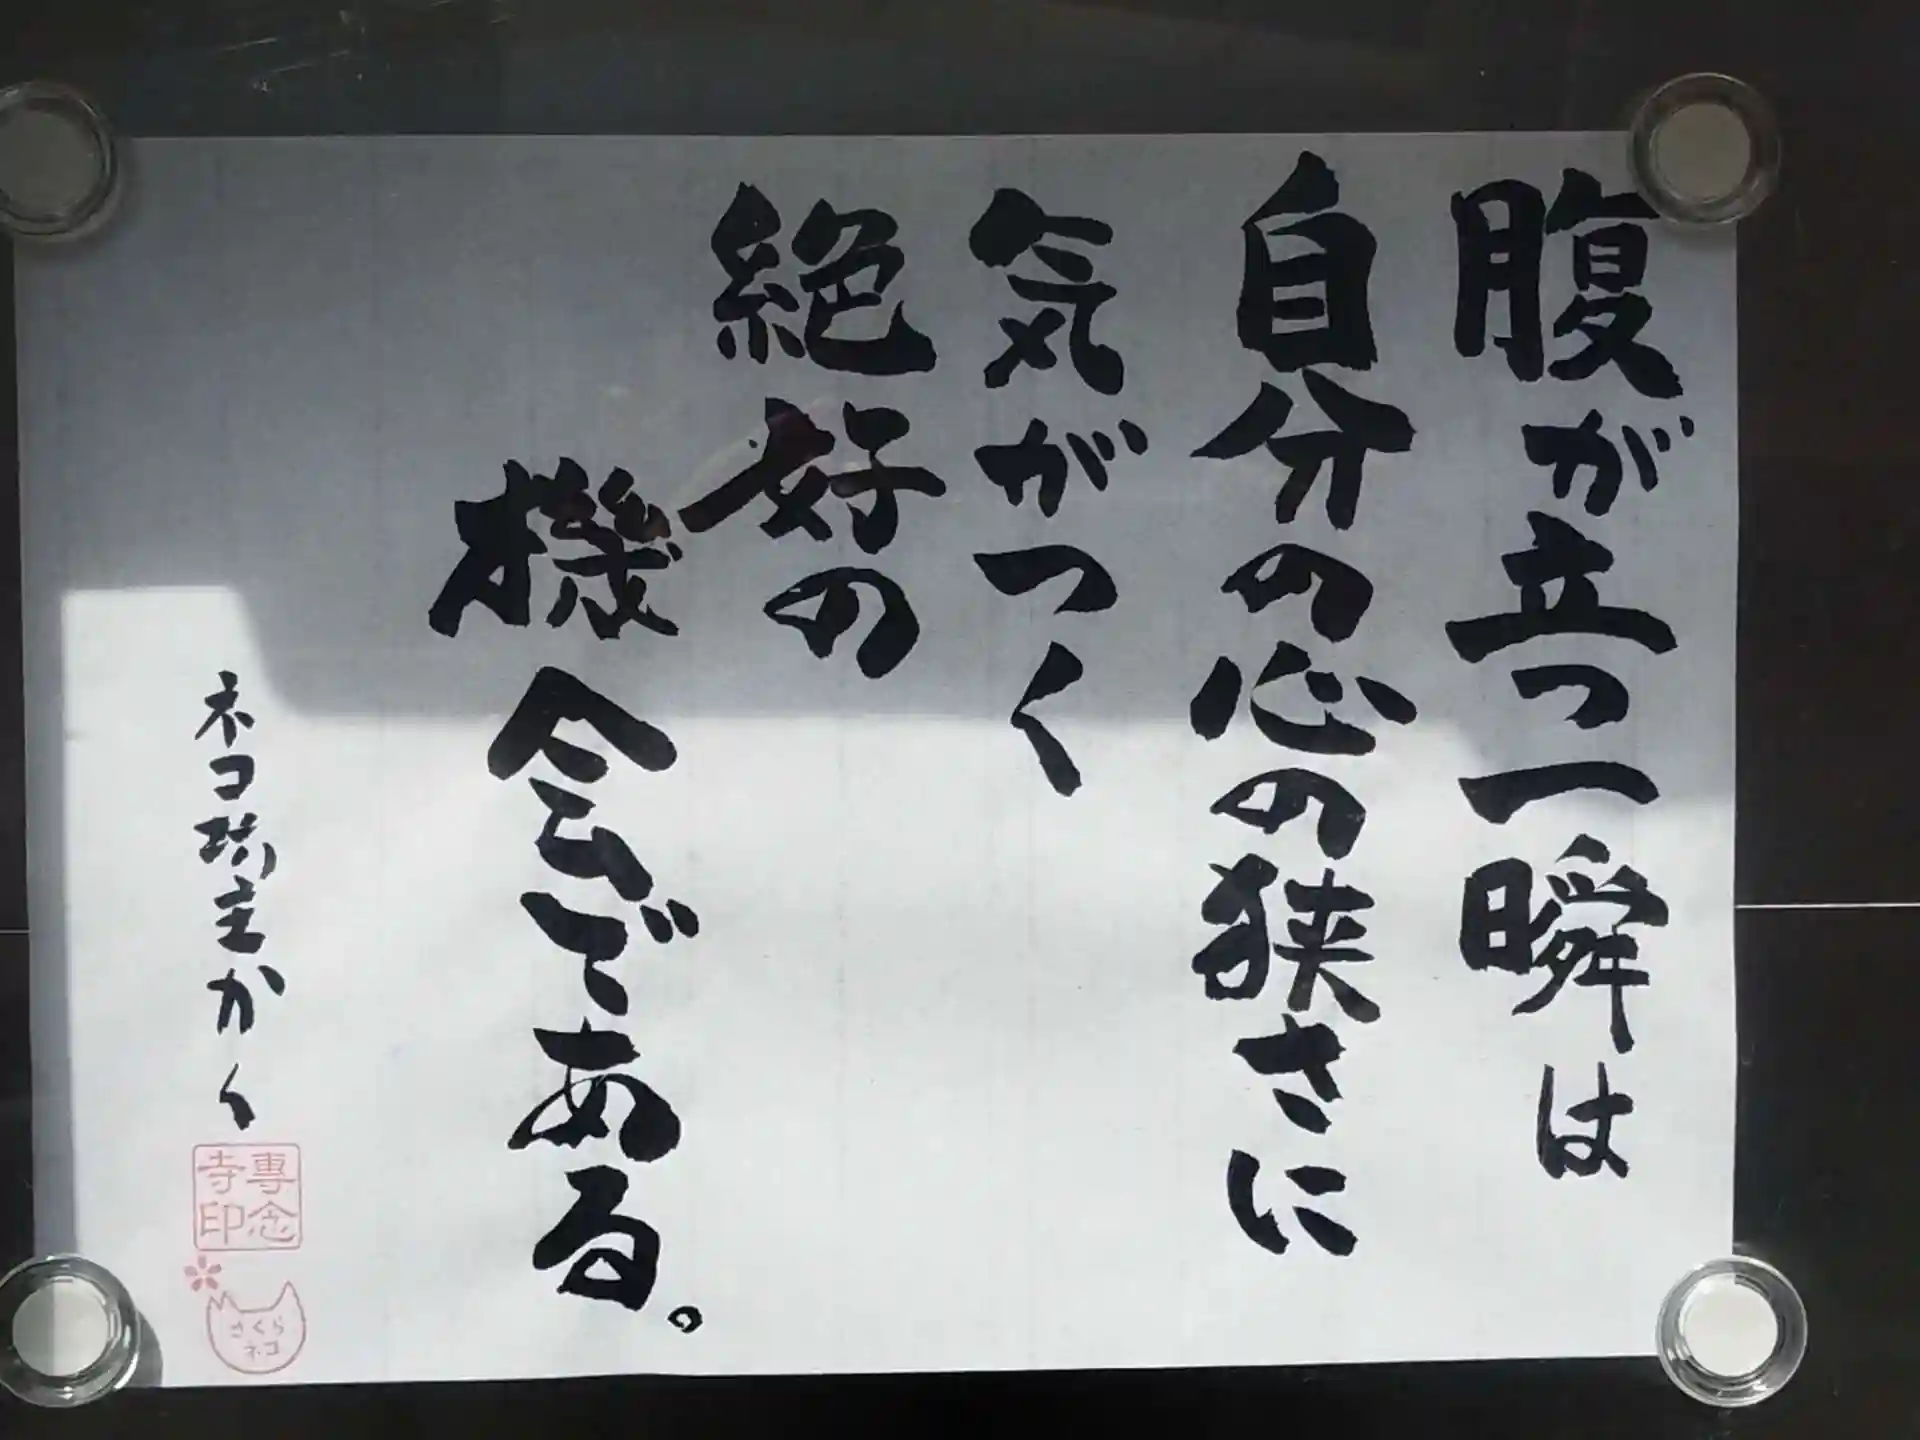 腹が立つ一瞬は
自分の心の狭さに
気がつく
絶好の
機会である。
ネコ坊主かく
専念
寺印
さくら
ネコ